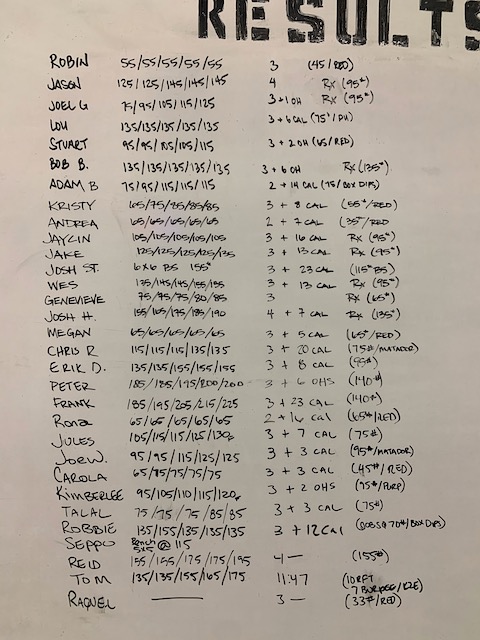 RESULTS
ROBIN 55/55/55/55/55 3 (45/RED)
JASON 125/125/145/145/145 4 Rx (95#)
JOEL G 75/95/105/115/125 3+1 OH Rx (95#)
LOU 135/135/135/135/135 3+6 CAL (75#/PU)
STUART 95/95/105/105/115 3+2 OH (65/RED)
BOB B. 135/135/135/135/135 3+6 OH Rx (135#)
ADAM B 75/95/115/115/115 2+14 CAL (75/BOX DIPS)
KRISTY 65/75/85/85/85 3 + 8 CAL (55#/RED)
ANDREA 65/65/65/65/65 2 + 7 CAL (35#/RED
JAYLIN 105/105/105/105/105 3 + 16 CAL Rx (95#)
JAKE 125/125/125/125/135 3 + 13 CAL Rx (95#)
JOSH ST. 6x6 BS 155# 3 + 23 CAL (115# BS)
WES 135/145/145/155/155 3 + 13 CAL Rx (95#)
GENEVIEVE 75/75/75/80/85 3 Rx (65#)
JOSH H. 155/165/175/185/190 4 + 7 CAL Rx (135#)
MEGAN 65/65/65/65/65 3 + 5 CAL (65#/RED)
CHRIS R 115/115/115/135/135 3 + 20 CAL (75#/MATADOR)
ERIK D. 135/135/155/155/155 3 + 8 CAL (95#)
PETER 185/185/195/200/200 3 + 6 OHS (140#)
FRANK 185/195/205/215/225 3 + 23 CAL (140#)
Rona 65/65/65/65/65 2 + 16 Cal (65#/RED)
JULES 105/115/115/125/130 3 + 7 CAL (75#)
JOE W. 95/95/115/125/125 3 + 3 CAL (95#/MATADOR)
CAROLA 65/75/75/75/75 3 + 3 CAL (45#/RED)
KIMBERLEE 95/105/110/115/120 3 + 2 OHS (75#/PURP)
TALAL 75/75/75/85/85 3 + 3 CAL (75#)
ROBBIE 135/155/135/135/135 3 + 12 Cal (70#/BOX DIPS)
SEPPO Bench 5x5 @ 115
REID 155/155/175/175/195 4 — (155#)
TOM 135/135/155/165/175 11:47 (10 RFT
7 BURPEE/K2E)
RAQUEL — 3 — (33#/RED)